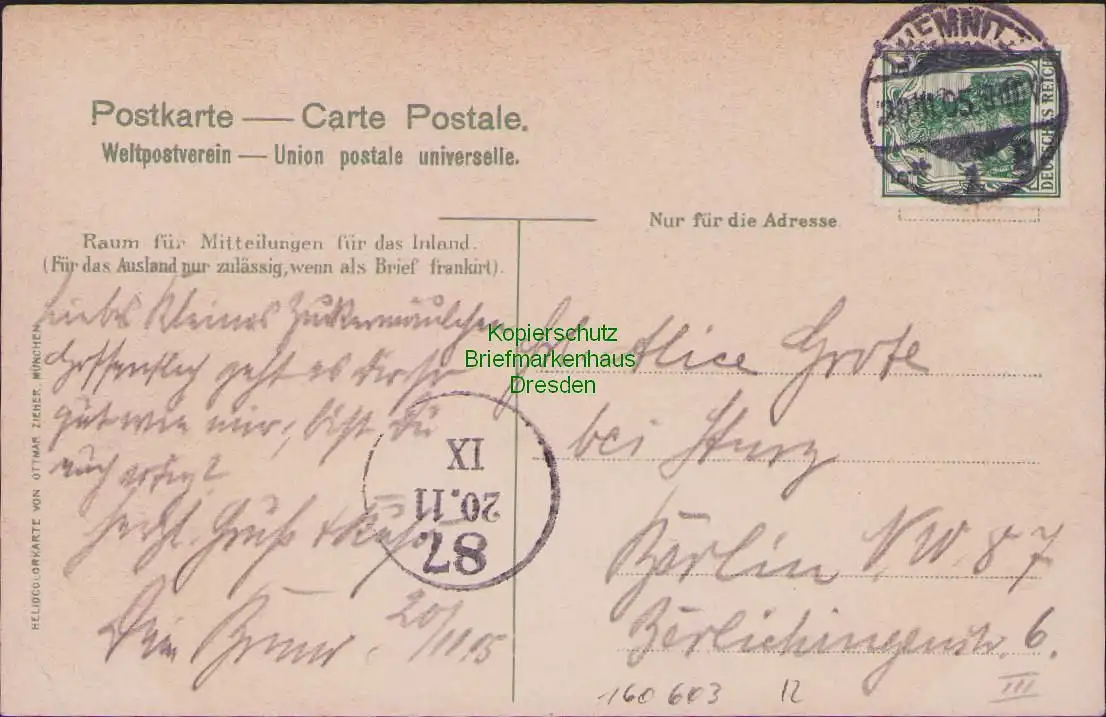 CHEMNITZ
20.11.05.
1
DEUTSCHES REICH
Postkarte — Carte Postale.
Weltpostverein — Union postale universelle.
Nur für die Adresse
Raum für Mitteilungen für das Inland.
(Für das Ausland nur zulässig, wenn als Brief frankirt).
Liebes Kleines Zuckermäulchen
Hoffentlich geht es Dir so
gut wie mir, bist Du
auch artig?
Herzl. Gruß + Kuß
Dein
20/11 05
Frl. Alice Grote
bei
Berlin N.W. 87
Berlichingenstr. 6.
III
160603 12
IX
20.11
87
HELIOCOLORKARTE VON OTTMAR ZIEHER, MÜNCHEN
Kopierschutz
Briefmarkenhaus
Dresden